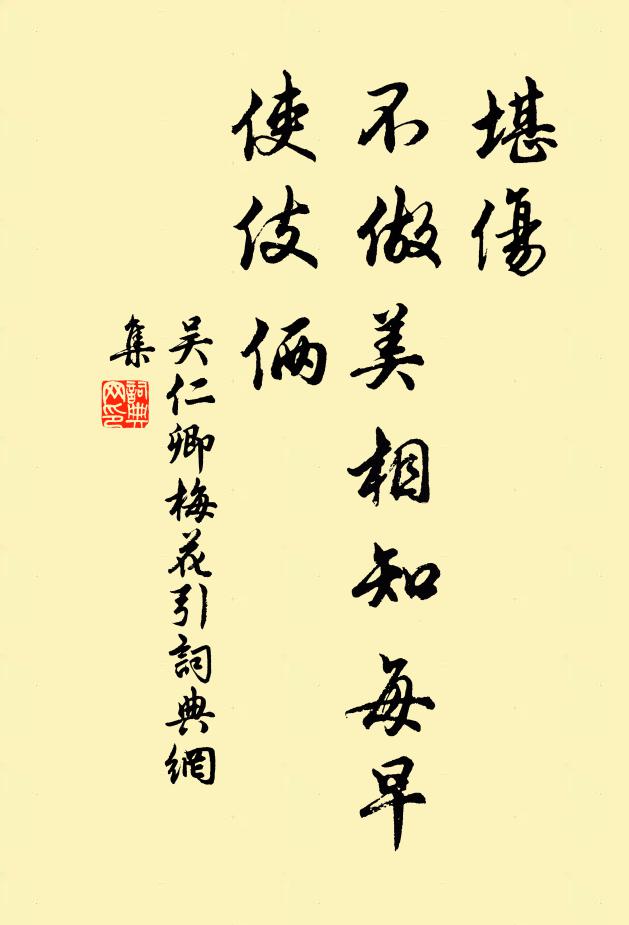 堪傷
不做美相知每早
使伎倆
吳仁卿梅花引詞典網
集
詞典
网印